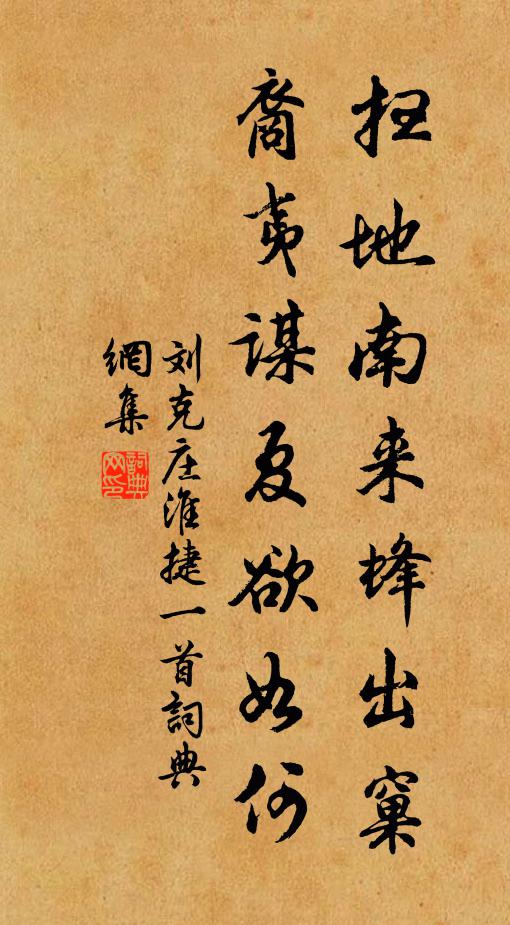 扫地南来蜂出窠
裔夷谋夏欲如何
刘克庄淮捷一首詞典
網集
詞典
网印